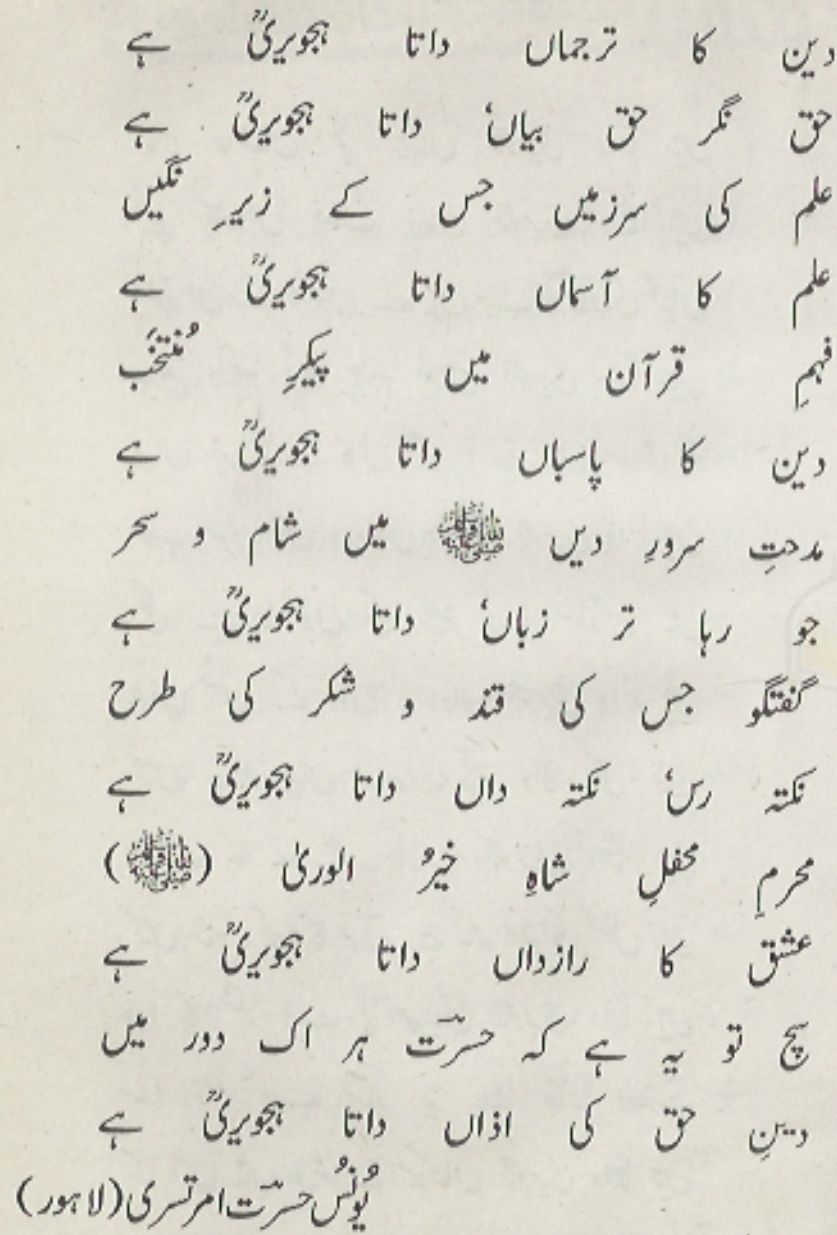 دین کا ترجماں داتا ہجویریؒ ہے
حق نگر حق بیاں' داتا ہجویریؒ ہے
علم کی سرزمیں جس کے زیرِ نگیں
علم کا آسماں داتا ہجویریؒ ہے
فہمِ قرآن میں پیکرِ مُنتخَب
دین کا پاسباں داتا ہجویریؒ ہے
مدحتِ سرورِ دیں ﷺ میں شام و سحر
جو رہا تر زباں' داتا ہجویریؒ ہے
گفتگو جس کی قند و شکر کی طرح
نکتہ رس' نکتہ داں داتا ہجویریؒ ہے
محرمِ محفلِ شاہِ خیرُ الوریٰ (ﷺ)
عشق کا رازداں داتا ہجویریؒ ہے
سچ تو یہ ہے کہ حسرؔت ہر اک دور میں
دینِ حق کی اذاں داتا ہجویریؒ ہے
یُونُس حسرؔت امرتسری (لاہور)